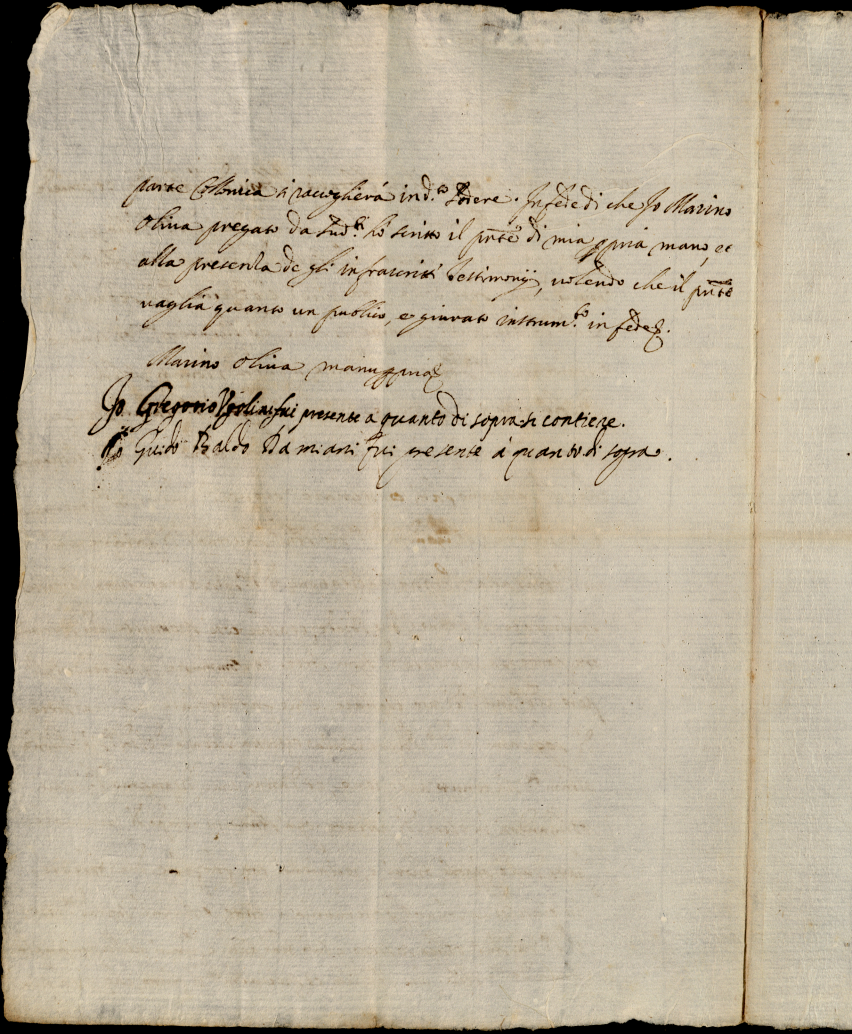 parte Colonica si raccoglierà in d.to Podere. In fede di che Jo Marino
Oliva pregato da Sud.ti hò scritto il pñte di mia ppria mano, et
alla presenza de gli infrascritti Testimonij, volendo che il pñte
vaglia quanto un publico, e giurato instrum.to in fede
Marino Oliva manu ppria
Jo Gregorio Vgolini fui presente a quanto di sopra si contiene.
Io Guido Baldo Damiani fui presente à quanto di sopra.